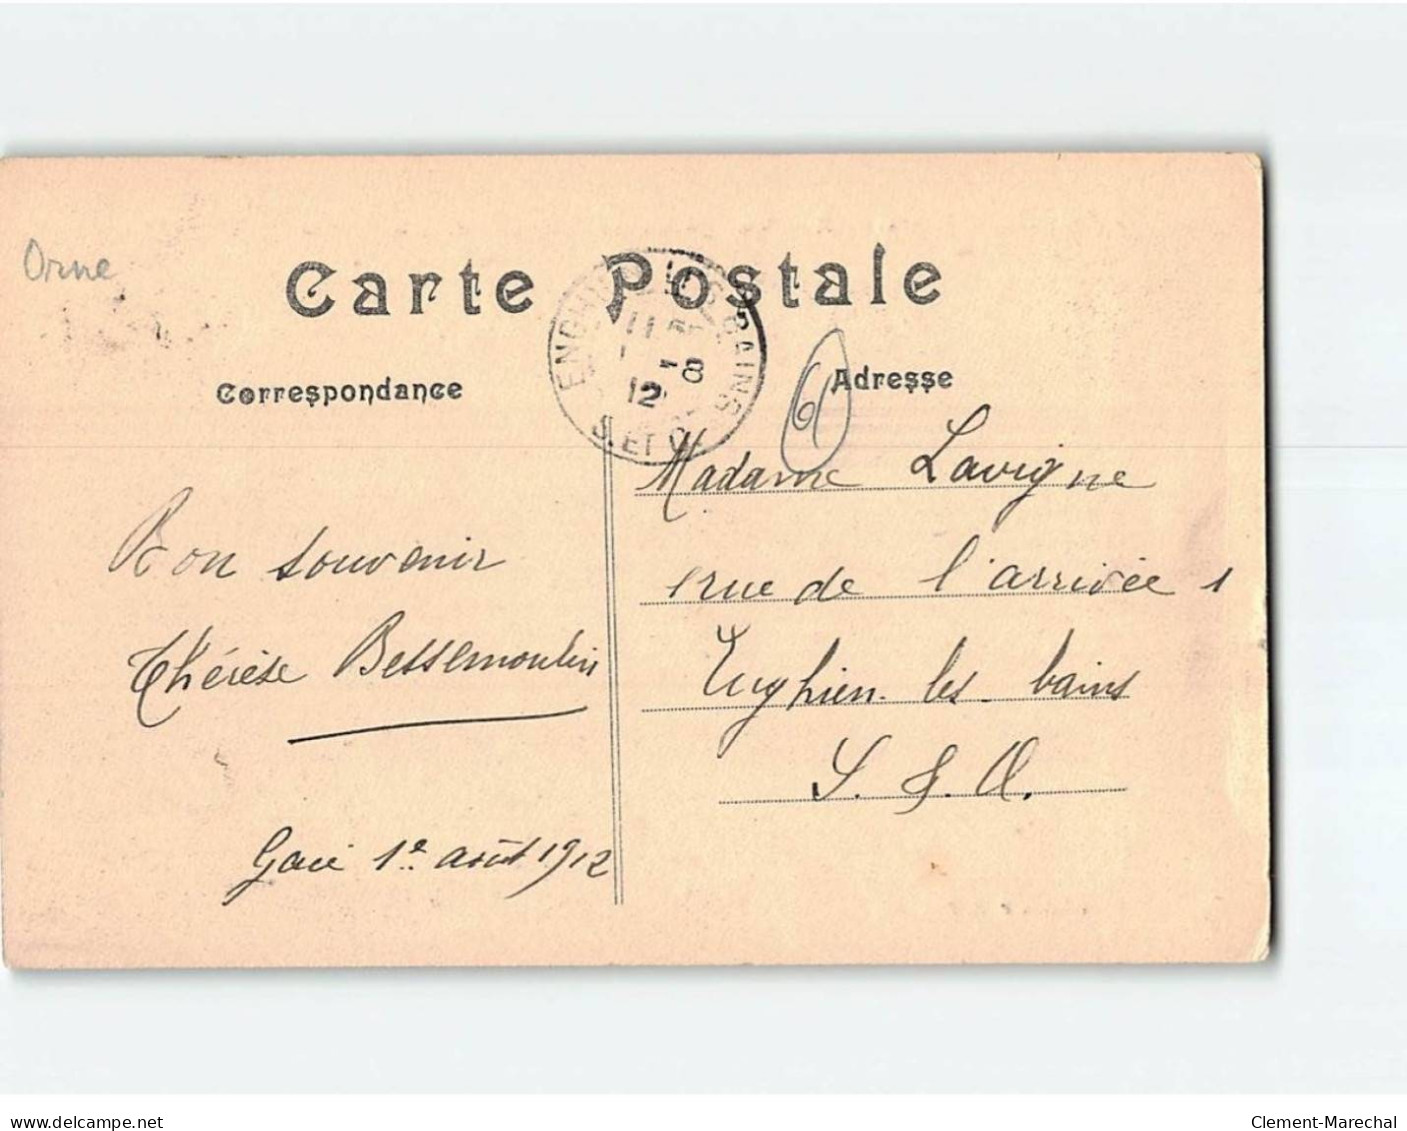 Orne
Carte Postale
ENGHIEN LES BAINS
11
-8
12
S. ET O.
Correspondance
Adresse
61
Madame Lavigne
rue de l'arrivée 1
Enghien-les-bains
S. & O.
Bon souvenir
Thérèse Bessemoulin
1e août 1912
delcampe.net
Clement-Marechal